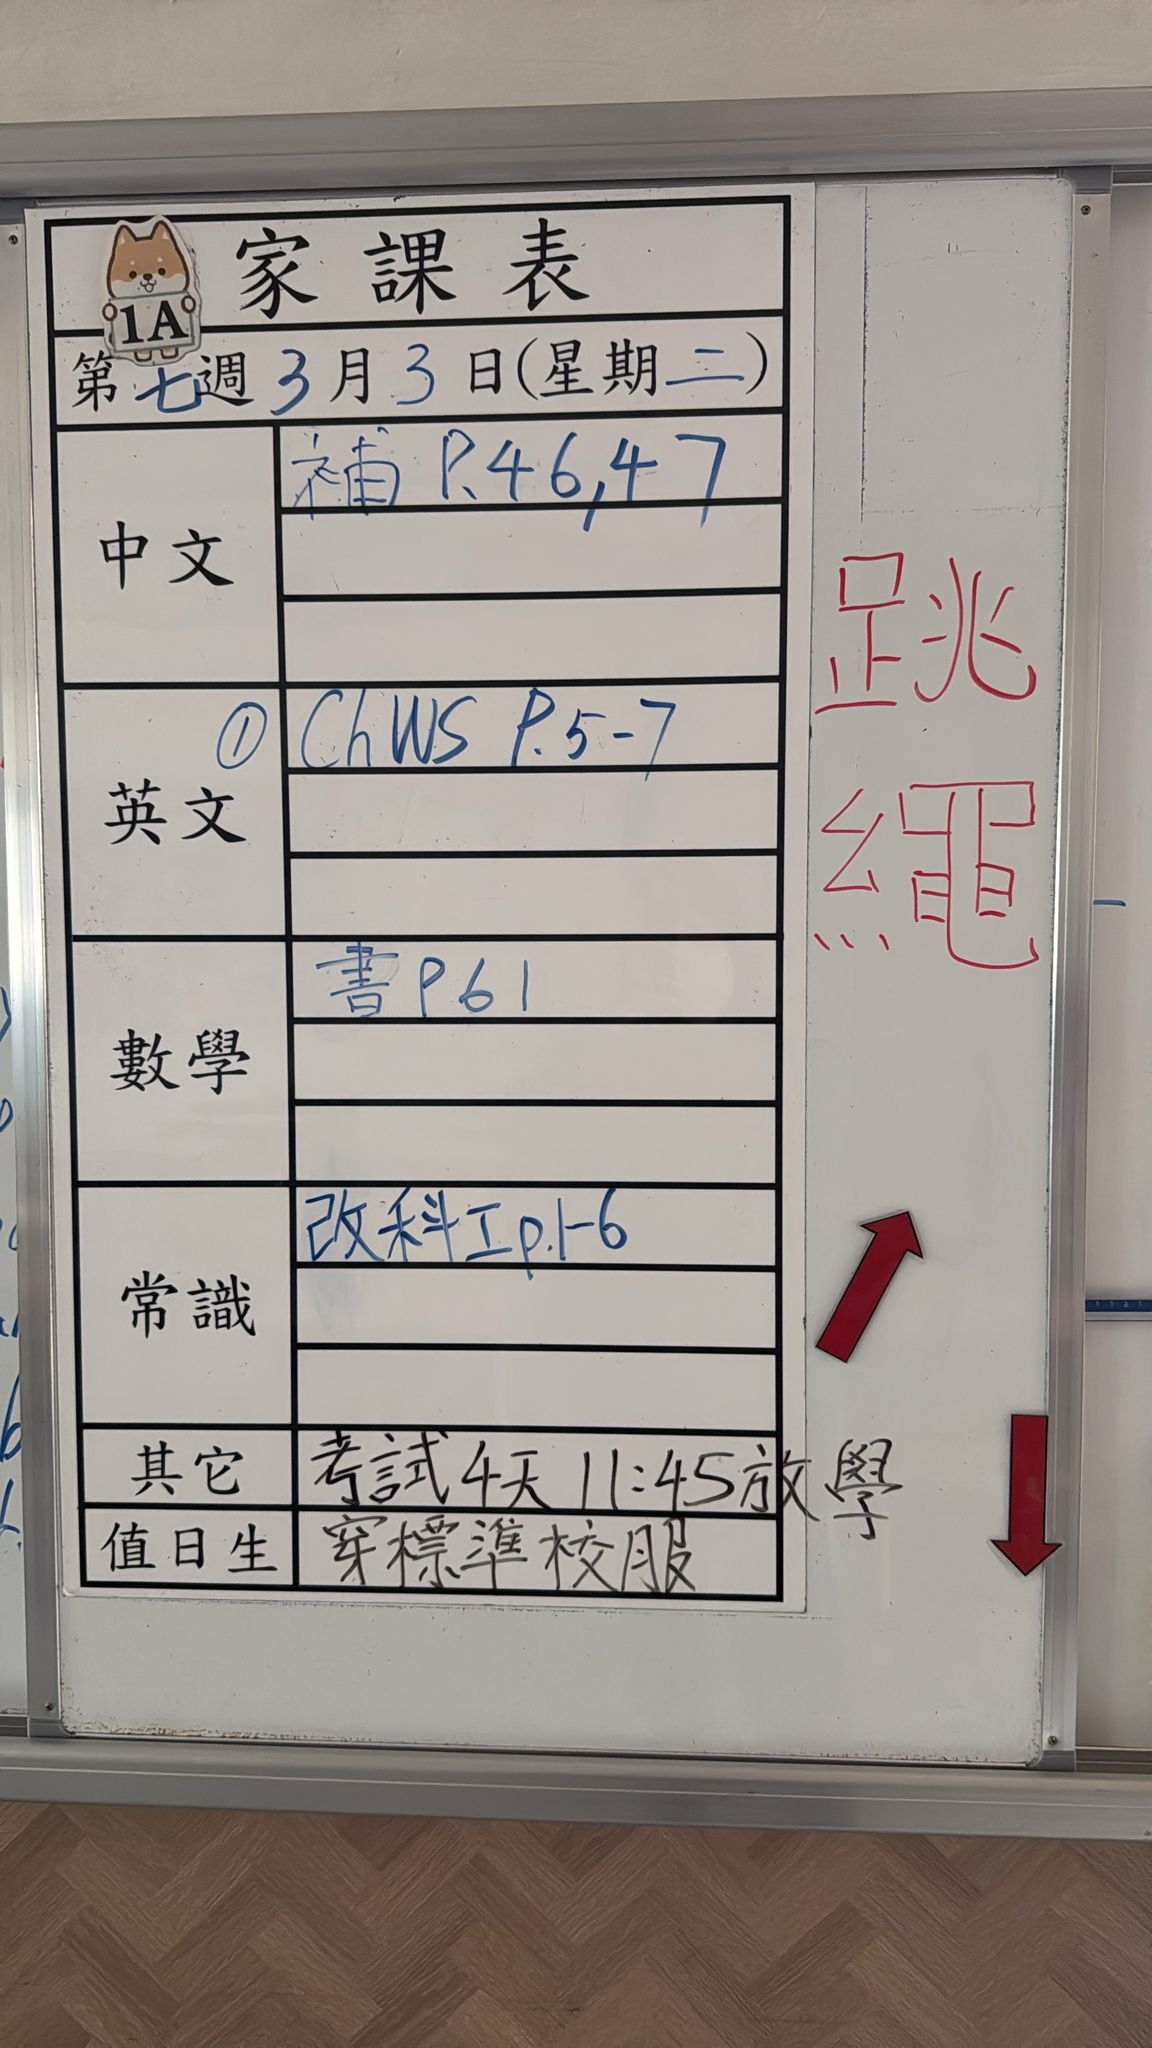 家課表
1A
第七週3月3日(星期二)
中文
補 P.46,47
英文
① ChWS P.5-7
數學
書P61
常識
改科工p.1-6
其它
考試4天 11:45放學
值日生
穿標準校服
跳
繩